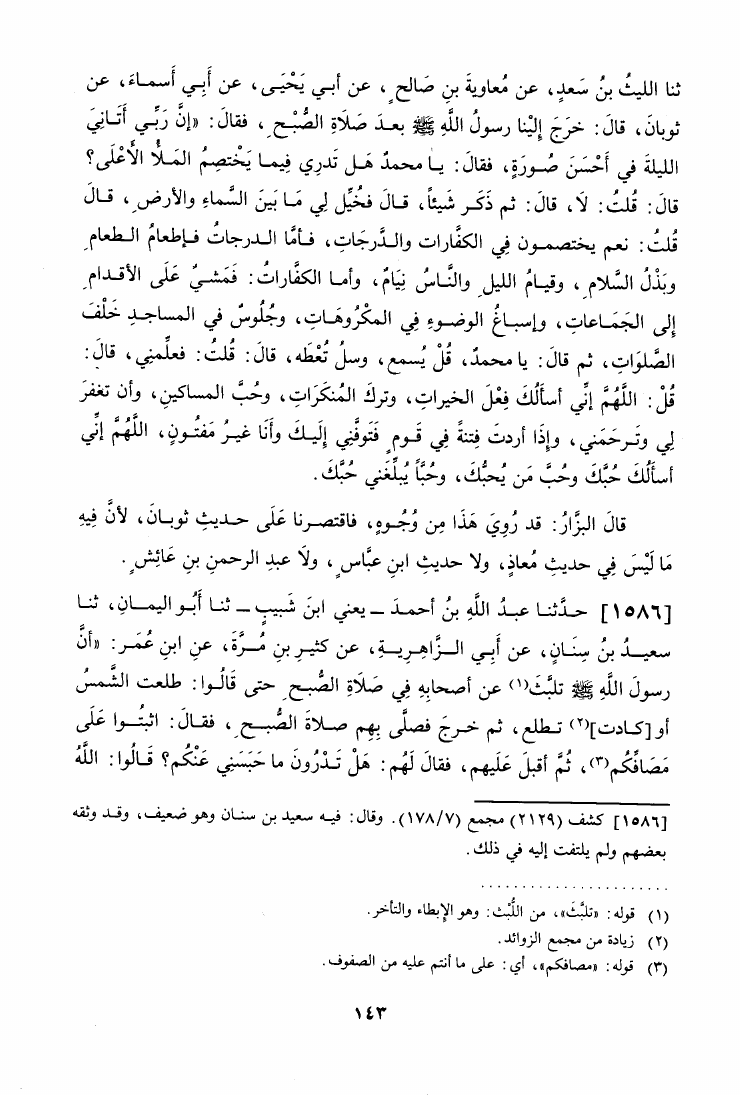 ثنا الليثُ بنُ سَعدٍ، عن مُعاويةَ بنِ صَالحٍ، عن أبي يَحْيَى، عن أَبِي أَسماءَ، عن
ثوبانَ، قالَ: خَرَجَ إِلَيْنا رسولُ اللَّهِ ﷺ بعدَ صَلَاةِ الصُّبْحِ، فقالَ: «إنَّ رَبِّي أَتَانِيَ
الليلةَ في أَحْسَنَ صُورَةٍ، فقالَ: يا محمدُ هَل تَدرِي فِيما يَخْتصِمُ المَلأُ الأَعْلَى؟
قالَ: قُلتُ: لَا، قالَ: ثم ذَكَر شَيئاً، قالَ فخُيِّل لِي مَا بَينَ السَّماءِ والأرضِ، قالَ
قُلتُ: نعم يختصمون فِي الكفَّارات والدَّرجَاتِ، فأمَّا الدرجاتُ فإطعامُ الطعامِ
وبَذْلُ السَّلامِ، وقيامُ الليلِ والنَّاسُ نِيَامٌ، وأما الكفاراتُ: فَمَشيٌ عَلَى الأقدامِ
إلى الجَمَاعاتِ، وإسباغُ الوضوءِ فِي المكْرُوهَاتِ، وجُلُوسٌ في المساجدِ خَلْفَ
الصَّلوَاتِ، ثم قالَ: يا محمدُ، قُلْ يُسمع، وسلُ تُعْطَه، قالَ: قُلتُ: فعلِّمنِي، قالَ:
قُلْ: اللَّهُمَّ إنِّي أسألُكَ فِعْلَ الخيراتِ، وتركَ المُنكَرَاتِ، وحُبَّ المساكينِ، وأن تغفرَ
لِي وتَرحَمَني، وإذَا أردتَ فِتنةً فِي قَومٍ فَتَوفَّنِي إلَيكَ وأَنَا غيرُ مَفتُونٍ، اللَّهُمَّ إنِّي
أسأَلُكَ حُبَّكَ وحُبَّ مَن يُحبُّكَ، وحُبَّاً يُبلِّغَني حُبَّكَ.
قالَ البزَّارُ: قد رُوِيَ هَذَا مِن وُجُوهٍ، فاقتصرنا عَلَى حديثِ ثوبانَ، لأنَّ فِيهِ
مَا لَيْسَ فِي حديثِ مُعاذٍ، ولا حديثِ ابنِ عبَّاسٍ، ولَا عبدِ الرحمنِ بنِ عَائِشٍ.
[١٥٨٦] حدَّثنا عبدُ اللَّهِ بنُ أحمدَ ـ يعني ابنَ شَبِيبٍ ـ ثنا أَبُو اليمانِ، ثنا
سعيدُ بنُ سِنَانٍ، عن أَبِي الزَّاهِريةِ، عن كثيرِ بنِ مُرَّةَ، عنِ ابنِ عُمَر: «أنَّ
رسولَ اللَّهِ ﷺ تلبَّثَ(١) عن أصحابِهِ فِي صَلَاةِ الصُّبحِ حتى قَالُوا: طلعت الشَّمسُ
أو [كادت](٢) تطلع، ثم خرجَ فصلَّى بِهِم صلاةَ الصُّبحِ، فقالَ: اثبتُوا عَلَى
مَصَافِّكُم(٣)، ثُمَّ أقبلَ عَلَيهِم، فقالَ لَهُم: هَلْ تَدْرُونَ ما حَبَسَنِي عَنْكُم؟ قَالُوا: اللَّهُ
[١٥٨٦] كشف (٢١٢٩) مجمع (١٧٨/٧). وقال: فيه سعيد بن سنان وهو ضعيف، وقد وثقه
بعضهم ولم يلتفت إليه في ذلك.
(١) قوله: «تلبَّثَ»، من اللَّبُث: وهو الإبطاء والتأخر.
(٢) زيادة من مجمع الزوائد.
(٣) قوله: «مصافكم»، أي: على ما أنتم عليه من الصفوف.
١٤٣